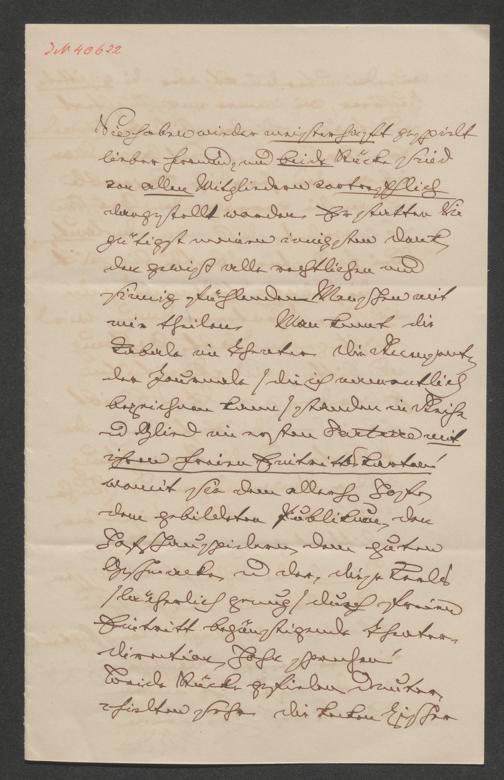 IN 40622
Sie haben wieder meisterhaft gespielt
lieber Freund, und beide Stücke sind
von allen Mitgliedern vortrefflich
dargestellt worden. Erstatten Sie
gütigst meinen innigsten Dank,
den gewiß alle rechtlichen und
sinnig fühlenden Menschen mit
mir theilen. Man kennt die
Kabale im Theater. Die
der Journale / die ich namentlich
bezeichnen kann / standen in Reih
u Glied im ersten Parterre mit
ihren freien Eintrittskarten!
womit sie dem allerh. Hofe,
dem gebildeten Publikum, den
Hofschauspielern, dem guten
Geschmacke, u der, diese Kerls
/ lächerlich genug / durch freien
Eintritt begünstigende Theater
direction, Hohn sprechen!
Beide Stücke gefielen,
die kecken Zischer